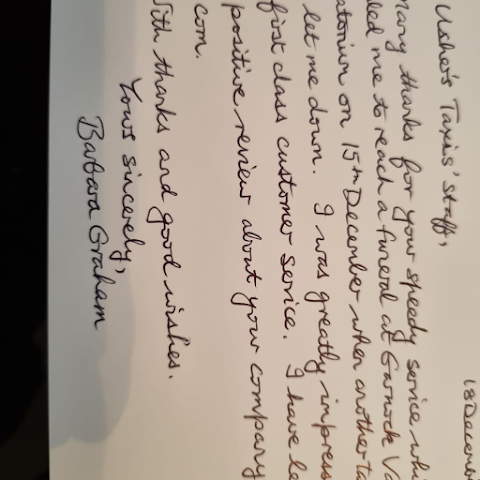 18 Decemb
Usher's Taxis' Staff,
Many thanks for your speedy service whi
led me to reach a funeral at Garnock Va
atorium on 15th December when another ta
let me down. I was greatly impress
first class customer service. I have le
positive review about your company
com.
With thanks and good wishes.
Yours sincerely,
Barbara Graham